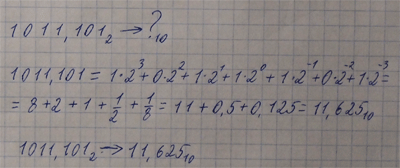 1011,101₂ → ?₁₀
1011,101 = 1·2³+0·2²+1·2¹+1·2⁰+1·2⁻¹+0·2⁻²+1·2⁻³=
= 8+2+1+½+⅛= 11+0,5+0,125= 11,625₁₀
1011,101₂ → 11,625₁₀